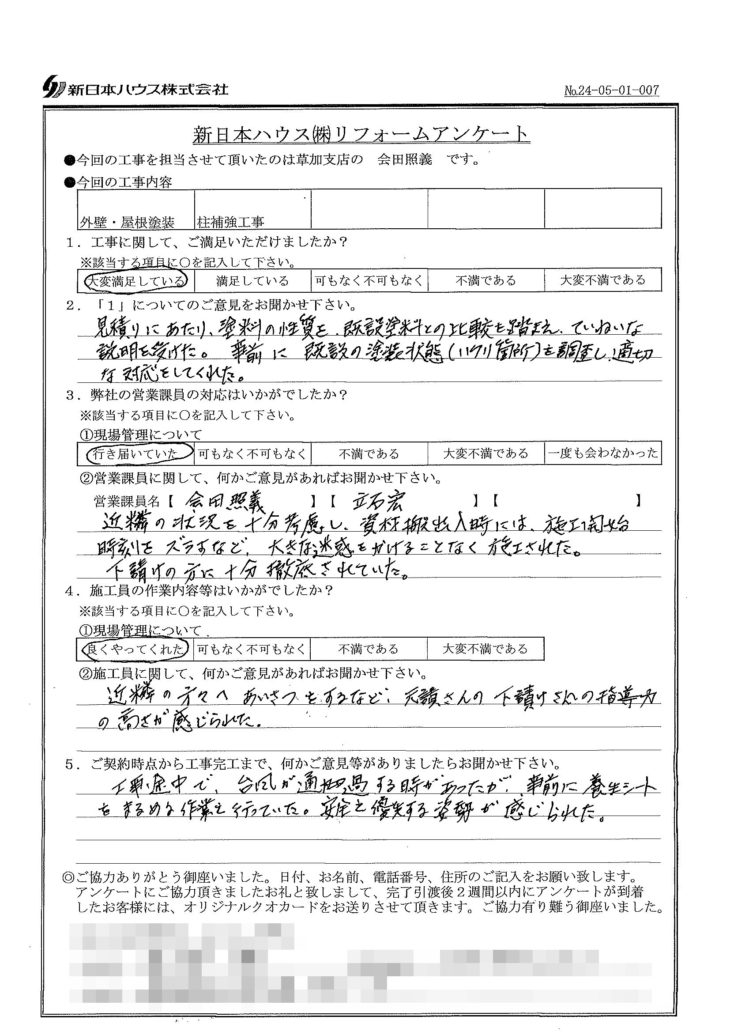 新日本ハウス株式会社
No.24-05-01-007
新日本ハウス㈱リフォームアンケート
●今回の工事を担当させて頂いたのは草加支店の 会田照義 です。
●今回の工事内容
外壁・屋根塗装 柱補強工事
1．工事に関して、ご満足いただけましたか？
※該当する項目に〇を記入して下さい。
大変満足している 満足している 可もなく不可もなく 不満である 大変不満である
2．「1」についてのご意見をお聞かせ下さい。
見積りにあたり、塗料の性質を、既設塗料との比較を踏まえ、ていねいな
説明を受けた。事前に既設の塗装状態(ハクリ箇所)を調査し、適切
な対応をしてくれた。
3．弊社の営業課員の対応はいかがでしたか？
※該当する項目に〇を記入して下さい。
①現場管理について
行き届いていた 可もなく不可もなく 不満である 大変不満である 一度も会わなかった
②営業課員に関して、何かご意見があればお聞かせ下さい。
営業課員名【 会田照義 】【 立石宏 】【 】
近隣の状況を十分考慮し、資材搬出入時には、施工開始
時刻をズラすなど、大きな迷惑をかけることなく施工された。
下請けの方に十分徹底されていた。
4．施工員の作業内容等はいかがでしたか？
※該当する項目に〇を記入して下さい。
①現場管理について
良くやってくれた 可もなく不可もなく 不満である 大変不満である
②施工員に関して、何かご意見があればお聞かせ下さい。
近隣の方々へあいさつをするなど、元請さんの下請けさんへの指導力
の高さが感じられた。
5．ご契約時点から工事完工まで、何かご意見等がありましたらお聞かせ下さい。
工事途中で、台風が通過する時があったが、事前に養生シート
をまるめる作業を行っていた。安全を優先する姿勢が感じられた。
◎ご協力ありがとう御座いました。日付、お名前、電話番号、住所のご記入をお願い致します。
アンケートにご協力頂きましたお礼と致しまして、完了引渡後2週間以内にアンケートが到着
したお客様には、オリジナルクオカードをお送りさせて頂きます。ご協力有り難う御座いました。